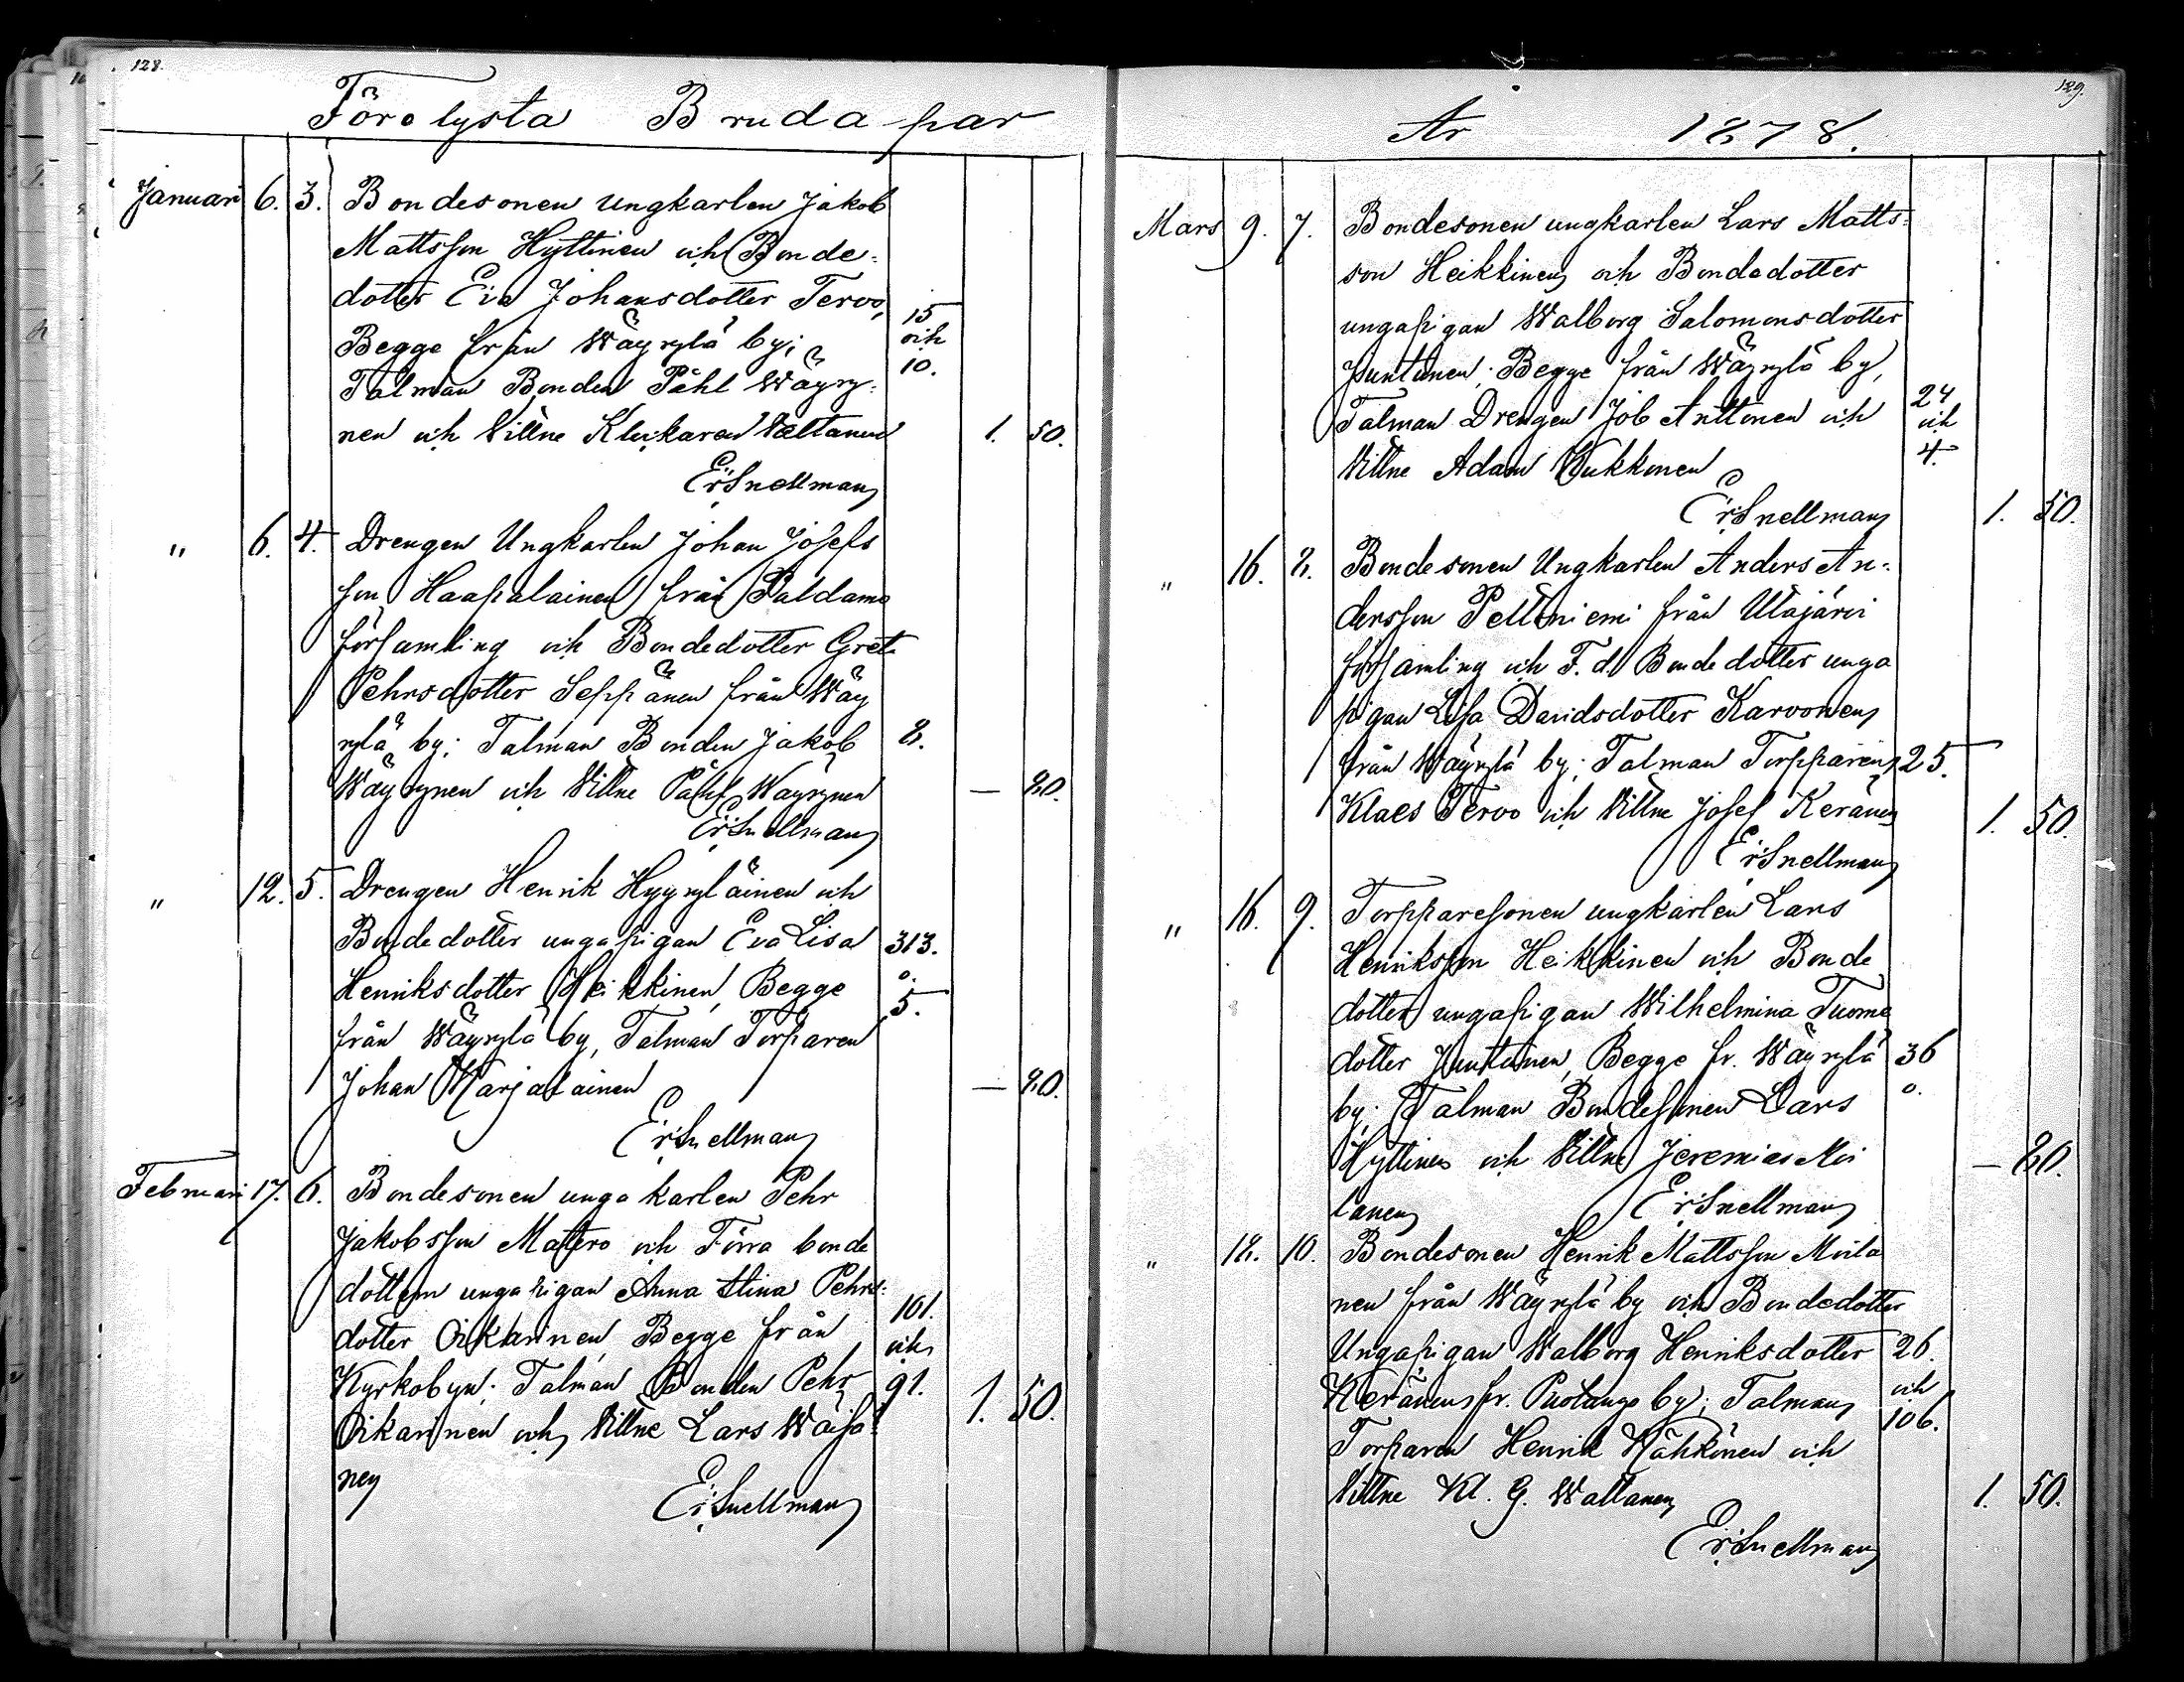 128.
Förelysta Brudapar
Januari 6. 3. Bondesonen ungkarlen Jakob
Mattsson Hyttinen och Bonde-
dotter Eva Johansdotter Tervo,
Begge från Wäyrylä by; 15 och 10.
Talman Bonden Påhl Wäyry-
nen och Vittne Klockaren Waltanen 1. 50.
Er: Snellman
" 6. 4. Drengen Ungkarlen Johan Josefs
son Haapalainen från Paldamo
församling och Bondedotter Greta
Pehrsdotter Seppänen från Wäy
rylä by; Talman Bonden Jakob 8.
Wäyrynen och Vittne Påhl Wäyrynen — 80.
Er: Snellman
" 12. 5. Drengen Henrik Hyyryläinen och
Bondedotter ungapigan Eva Lisa 313.
Henriksdotter Heikkinen, Begge o.
från Wäyrylä by, Talman Torparen 5.
Johan Karjalainen — 80.
Er: Snellman
Februari 17. 6. Bondesonen unga karlen Pehr
Jakobsson Matero och Förra bonde
dottern ungapigan Anna Stina Pehrs-
dotter Oikarinen, Begge från 101.
Kyrkobyn; Talman Bonden Pehr och 91.
Oikarinen och Vittne Lars Wäisä- 1. 50.
nen
Er: Snellman
129.
År 1878.
Mars 9. 7. Bondesonen ungkarlen Lars Matts-
son Heikkinen och Bondedotter
ungapigan Walborg Salomonsdotter
Juntunen; Begge från Wäyrylä by,
Talman Drengen Job Anttonen och 24 och 4.
Vittne Adam Kukkonen
Er: Snellman 1. 50.
" 16. 8. Bondesonen Ungkarlen Anders An-
dersson Peltoniemi från Utajärvi
församling och F. d. Bondedotter unga
pigan Lisa Davidsdotter Karvonen
från Wäyrylä by; Talman Torpparen 25.
Klaes Tervo och Vittne Josef Keränen 1. 50.
Er: Snellman
" 16. 9. Torpparesonen ungkarlen Lars
Henriksson Heikkinen och Bonde
dotter ungapigan Wilhelmina Tuoma
dotter Juntunen, Begge fr. Wäyrylä 36
by; Talman Bondesonen Lars o.
Hyttinen och Vittne Jeremias Moi — 80.
lanen
Er: Snellman
" 18. 10. Bondesonen Henrik Mattsson Moila
nen från Wäyrylä by och Bondedotter
Ungapigan Walborg Henriksdotter 26.
Keränen fr. Puolango by; Talman och 106.
Torparen Henrik Kähkönen och
Vittne Kl. G. Waltanen 1. 50.
Er: Snellman